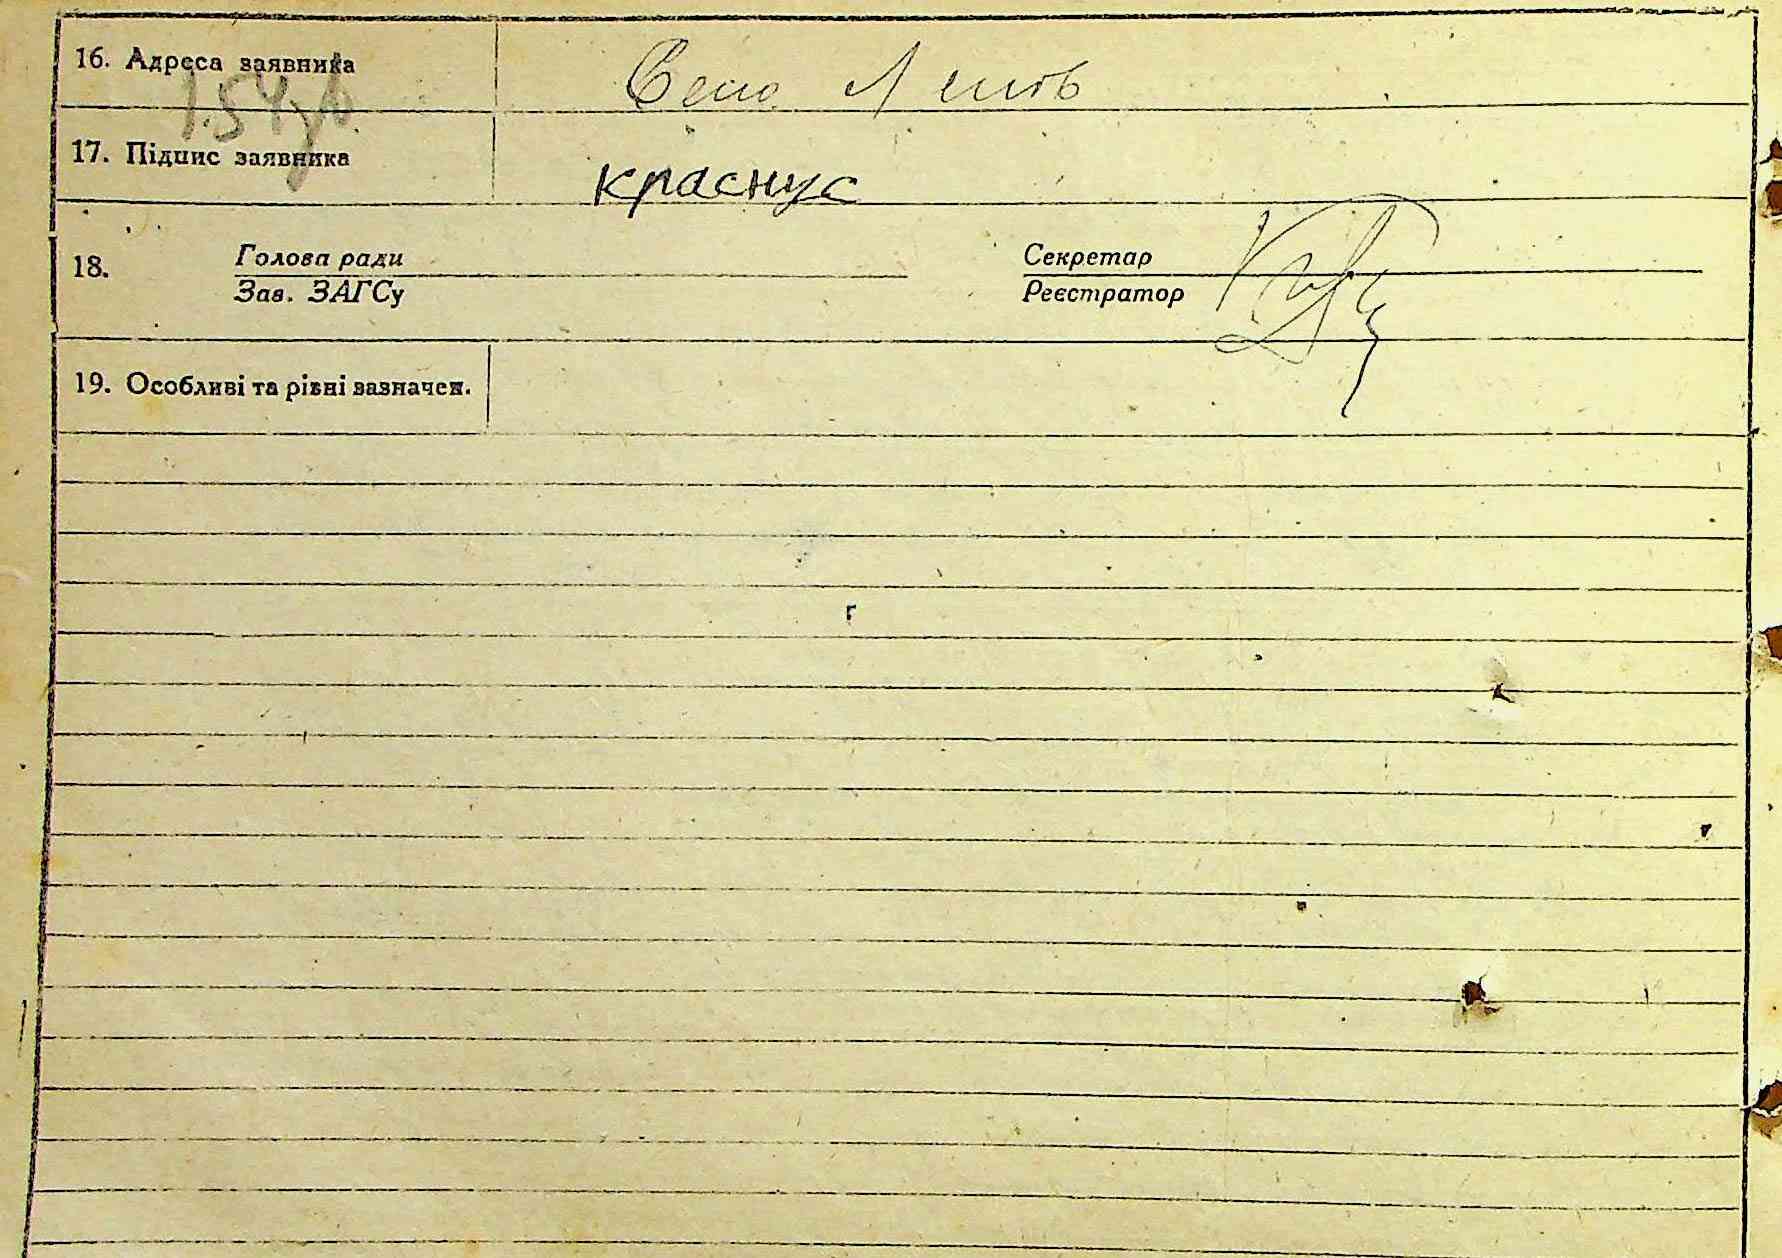 16. Адреса заявника
Село
17. Підпис заявника
краснус
18. Голова ради
Зав. ЗАГСу
Секретар
Реєстратор
19. Особливі та рівні зазначен.